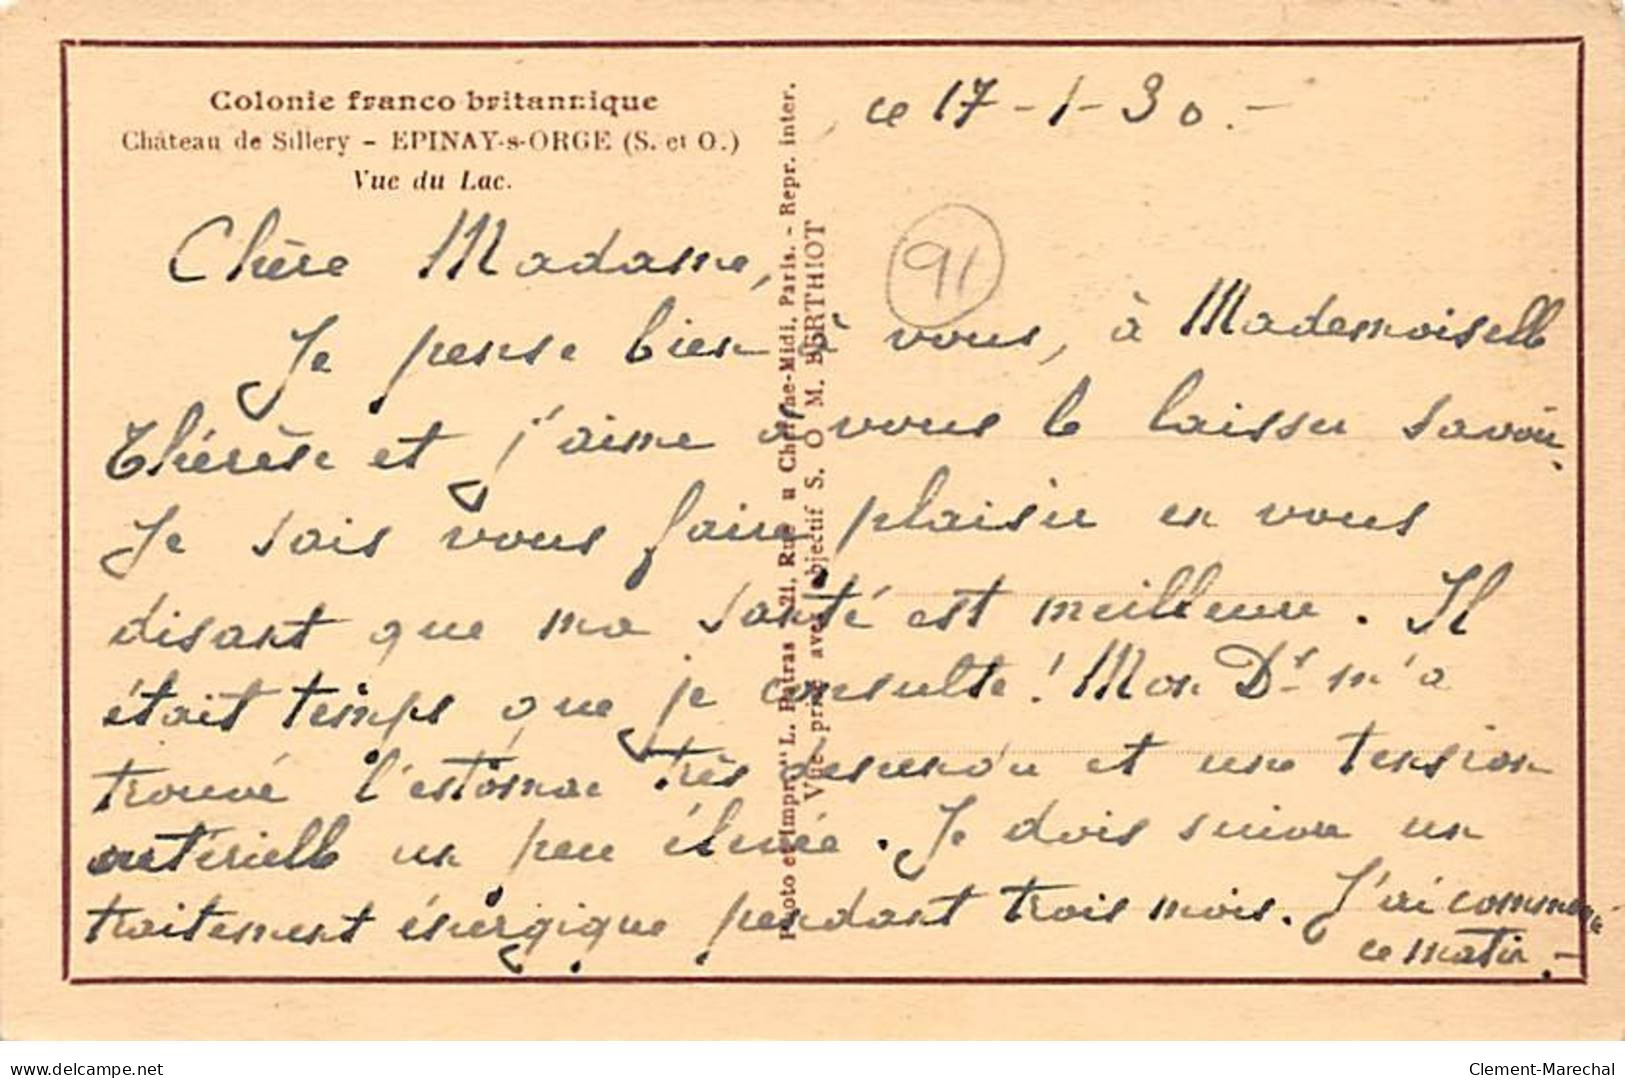 Colonie franco britannique
Château de Sillery - EPINAY-s-ORGE (S. et O.)
Vue du Lac.
ce 17-1-30.-
91
Chère Madame,
Je pense bien à vous, à Mademoiselle
Thérèse et j'aime à vous le laisser savoir.
Je sais vous faire plaisir en vous
disant que ma santé est meilleure. Il
était temps que je consulte! Mon Dr m'a
trouvé l'estomac très descendu et une tension
artérielle un peu élevée. Je dois suivre un
traitement énergique pendant trois mois. J'ai commencé
ce matin.-
Photo et impr. L. Patras 21, Rue u Cherche-Midi, Paris. - Repr. inter.
Vue prise avec objectif S. O M. BERTHIOT
delcampe.net
Clement-Marechal